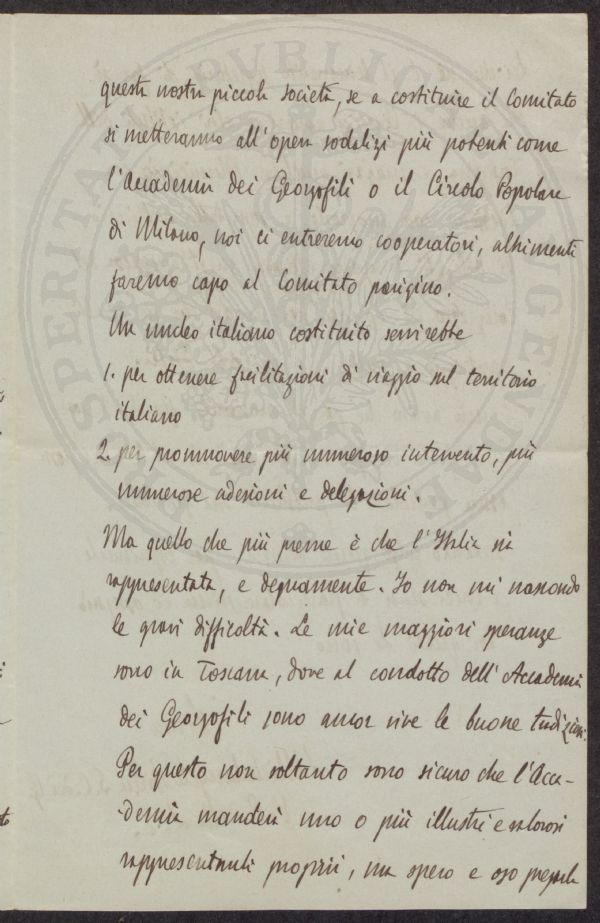 questa nostra piccola società, se a costituire il Comitato
si metteranno all'opera sodalizi più potenti come
l'Accademia dei Georgofili o il Circolo Popolare
di Milano, noi ci entreremo cooperatori, altrimenti
faremo capo al Comitato parigino.
Un nucleo italiano costituito servirebbe
1. per ottenere facilitazioni di viaggio sul territorio
italiano
2. per promuovere più numeroso intervento, più
numerose adesioni e delegazioni.
Ma quello che più preme è che l'Italia sia
rappresentata, e degnamente. Io non mi nascondo
le gravi difficoltà. Le mie maggiori speranze
sono in Toscana, dove al condotto dell'Accademia
dei Georgofili sono ancor vive le buone tradizioni.
Per questo non soltanto sono sicuro che l'Acca-
demia manderà uno o più illustri e valorosi
rappresentanti proprii, ma spero e oso pregarla